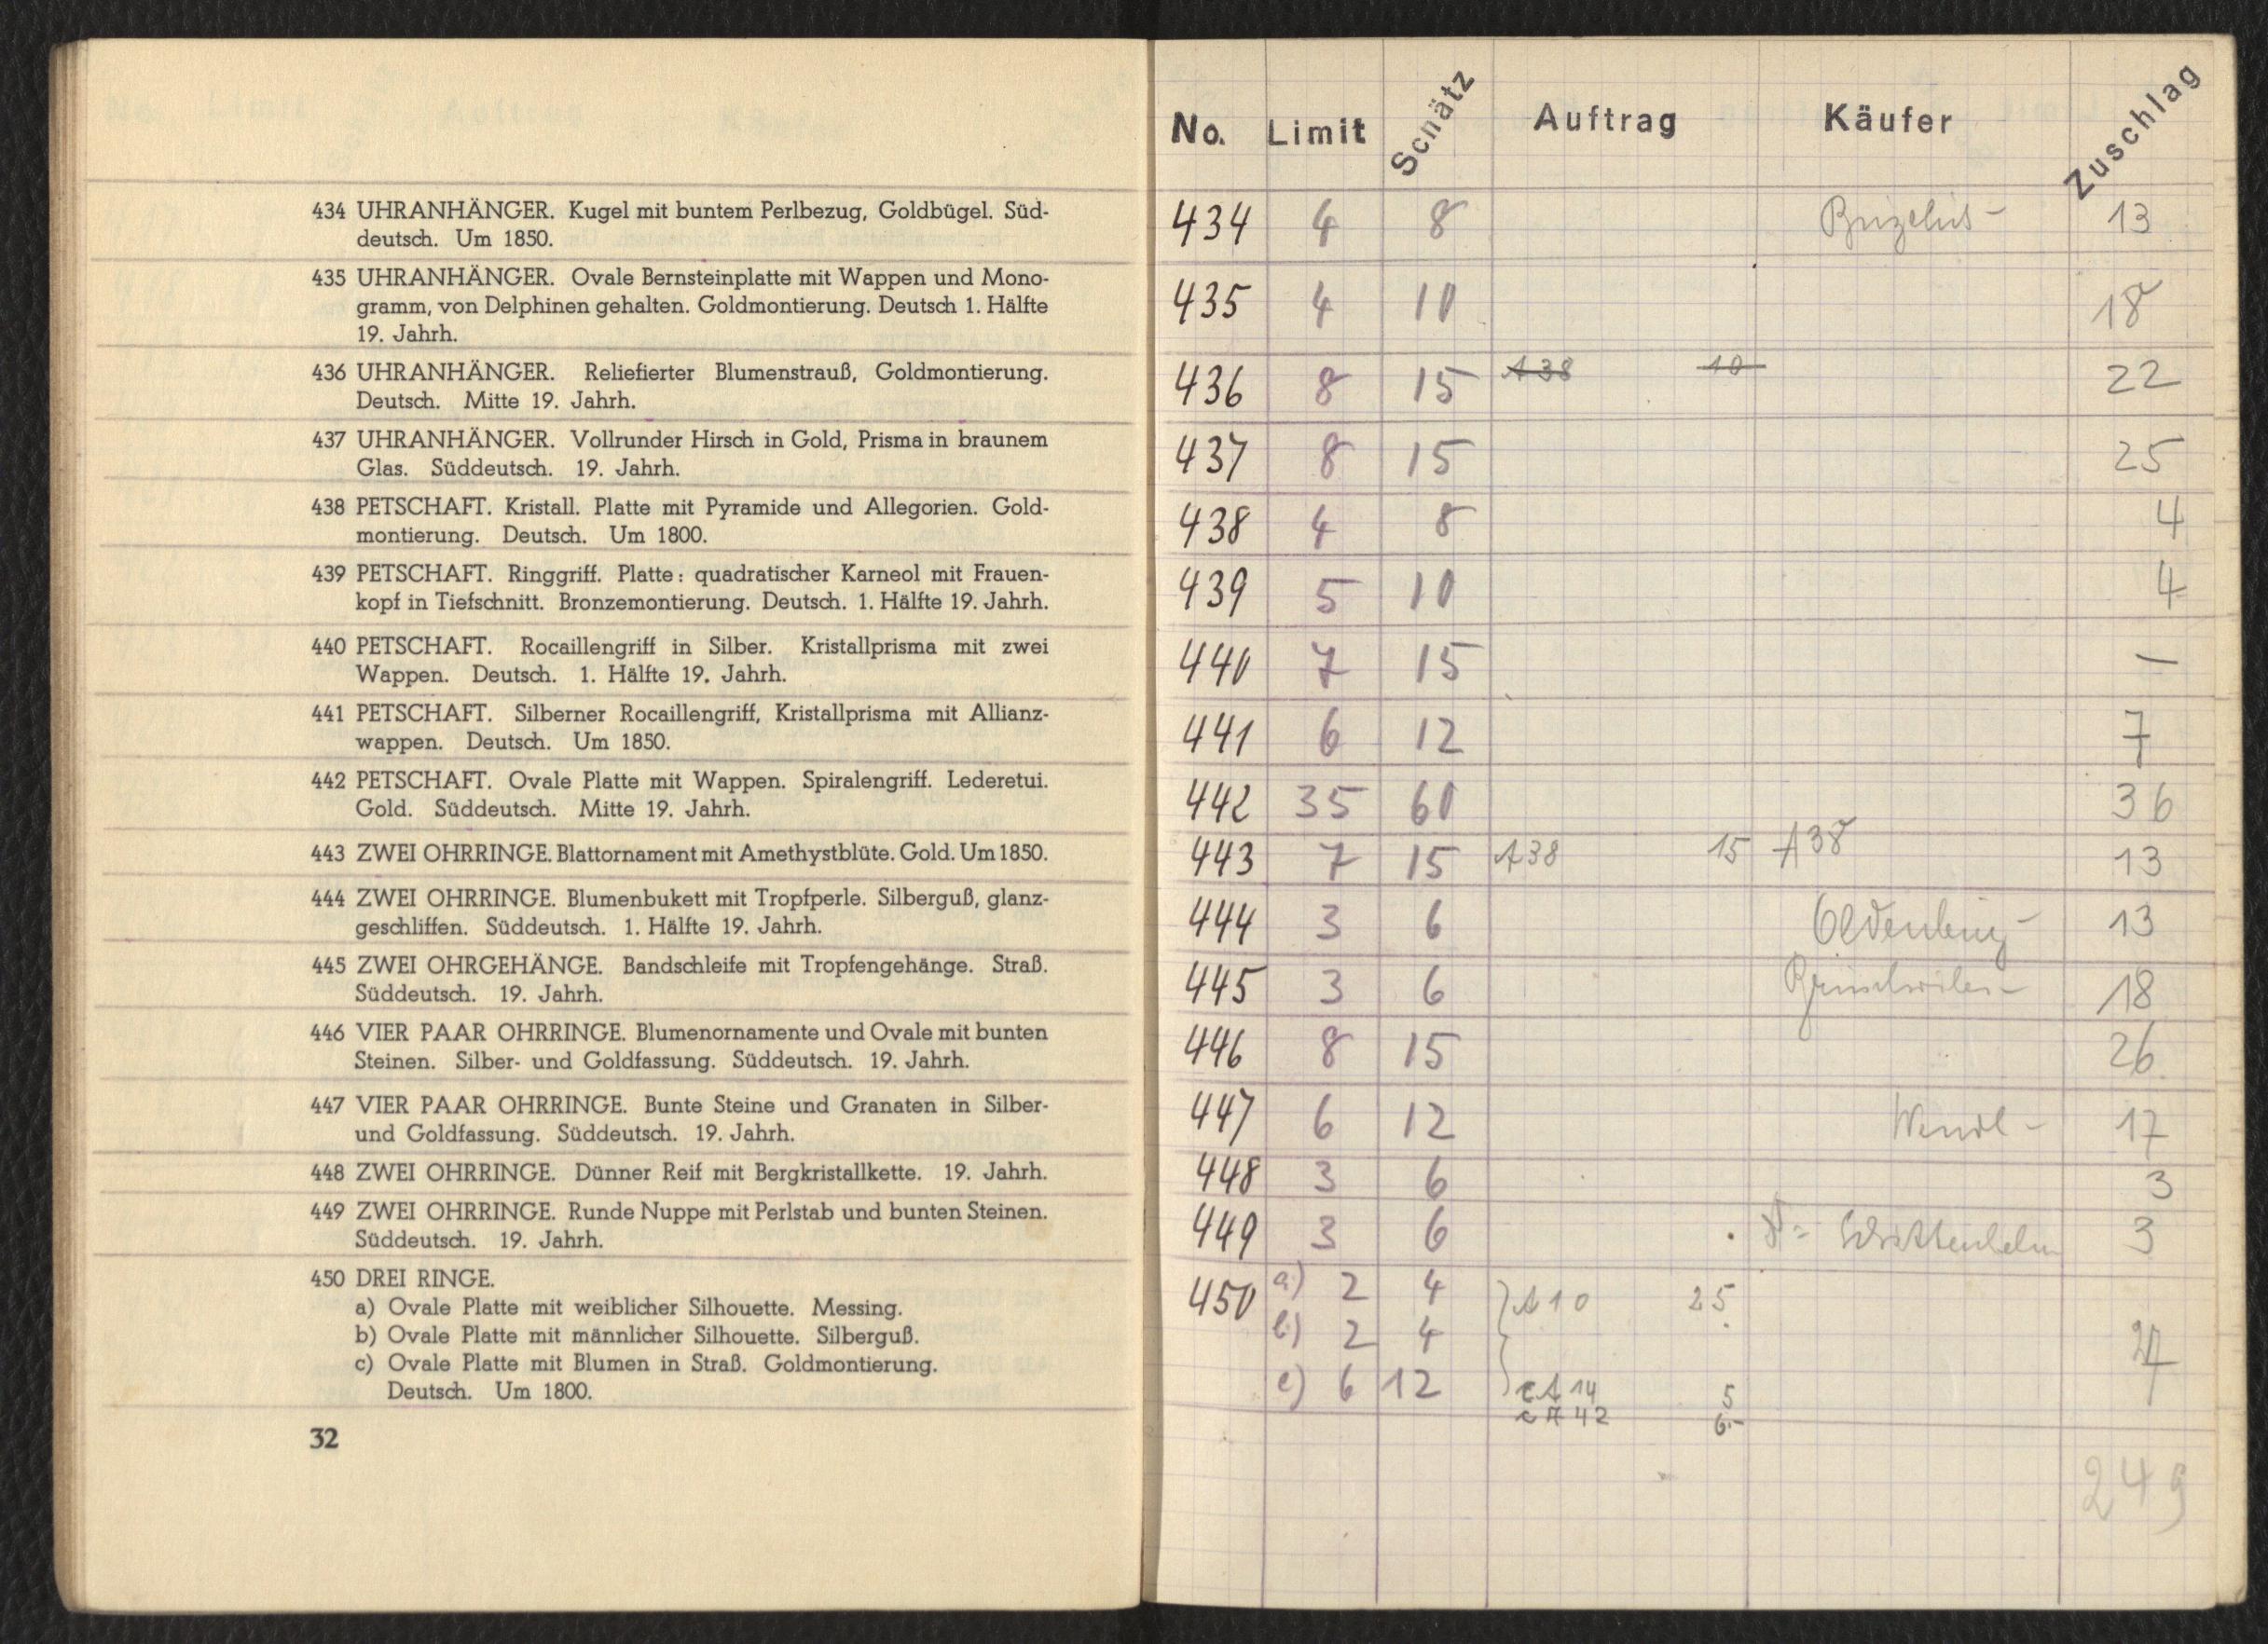 434 UHRANHÄNGER. Kugel mit buntem Perlbezug, Goldbügel. Süd-
deutsch. Um 1850.
435 UHRANHÄNGER. Ovale Bernsteinplatte mit Wappen und Mono-
gramm, von Delphinen gehalten. Goldmontierung. Deutsch 1. Hälfte
19. Jahrh.
436 UHRANHÄNGER. Reliefierter Blumenstrauß, Goldmontierung.
Deutsch. Mitte 19. Jahrh.
437 UHRANHÄNGER. Vollrunder Hirsch in Gold, Prisma in braunem
Glas. Süddeutsch. 19. Jahrh.
438 PETSCHAFT. Kristall. Platte mit Pyramide und Allegorien. Gold-
montierung. Deutsch. Um 1800.
439 PETSCHAFT. Ringgriff. Platte: quadratischer Karneol mit Frauen-
kopf in Tiefschnitt. Bronzemontierung. Deutsch. 1. Hälfte 19. Jahrh.
440 PETSCHAFT. Rocaillengriff in Silber. Kristallprisma mit zwei
Wappen. Deutsch. 1. Hälfte 19. Jahrh.
441 PETSCHAFT. Silberner Rocaillengriff, Kristallprisma mit Allianz-
wappen. Deutsch. Um 1850.
442 PETSCHAFT. Ovale Platte mit Wappen. Spiralengriff. Lederetui.
Gold. Süddeutsch. Mitte 19. Jahrh.
443 ZWEI OHRRINGE. Blattornament mit Amethystblüte. Gold. Um 1850.
444 ZWEI OHRRINGE. Blumenbukett mit Tropfperle. Silberguß, glanz-
geschliffen. Süddeutsch. 1. Hälfte 19. Jahrh.
445 ZWEI OHRGEHÄNGE. Bandschleife mit Tropfengehänge. Straß.
Süddeutsch. 19. Jahrh.
446 VIER PAAR OHRRINGE. Blumenornamente und Ovale mit bunten
Steinen. Silber- und Goldfassung. Süddeutsch. 19. Jahrh.
447 VIER PAAR OHRRINGE. Bunte Steine und Granaten in Silber-
und Goldfassung. Süddeutsch. 19. Jahrh.
448 ZWEI OHRRINGE. Dünner Reif mit Bergkristallkette. 19. Jahrh.
449 ZWEI OHRRINGE. Runde Nuppe mit Perlstab und bunten Steinen.
Süddeutsch. 19. Jahrh.
450 DREI RINGE.
a) Ovale Platte mit weiblicher Silhouette. Messing.
b) Ovale Platte mit männlicher Silhouette. Silberguß.
c) Ovale Platte mit Blumen in Straß. Goldmontierung.
Deutsch. Um 1800.
32
No. Limit Schätz Auftrag Käufer Zuschlag
434 4 8 13
435 4 10 18
436 8 15 A 38 10 22
437 8 15 25
438 4 8 4
439 5 10 4
440 7 15 —
441 6 12 7
442 35 60 36
443 7 15 A38 15 A38 13
444 3 6 Oldenburg - 13
445 3 6 18
446 8 15 26
447 6 12 17
448 3 6 3
449 3 6 3
450 a) 2 4 } A 10 25
b) 2 4
c) 6 12 c A 14 5
c A 42 6.-
249